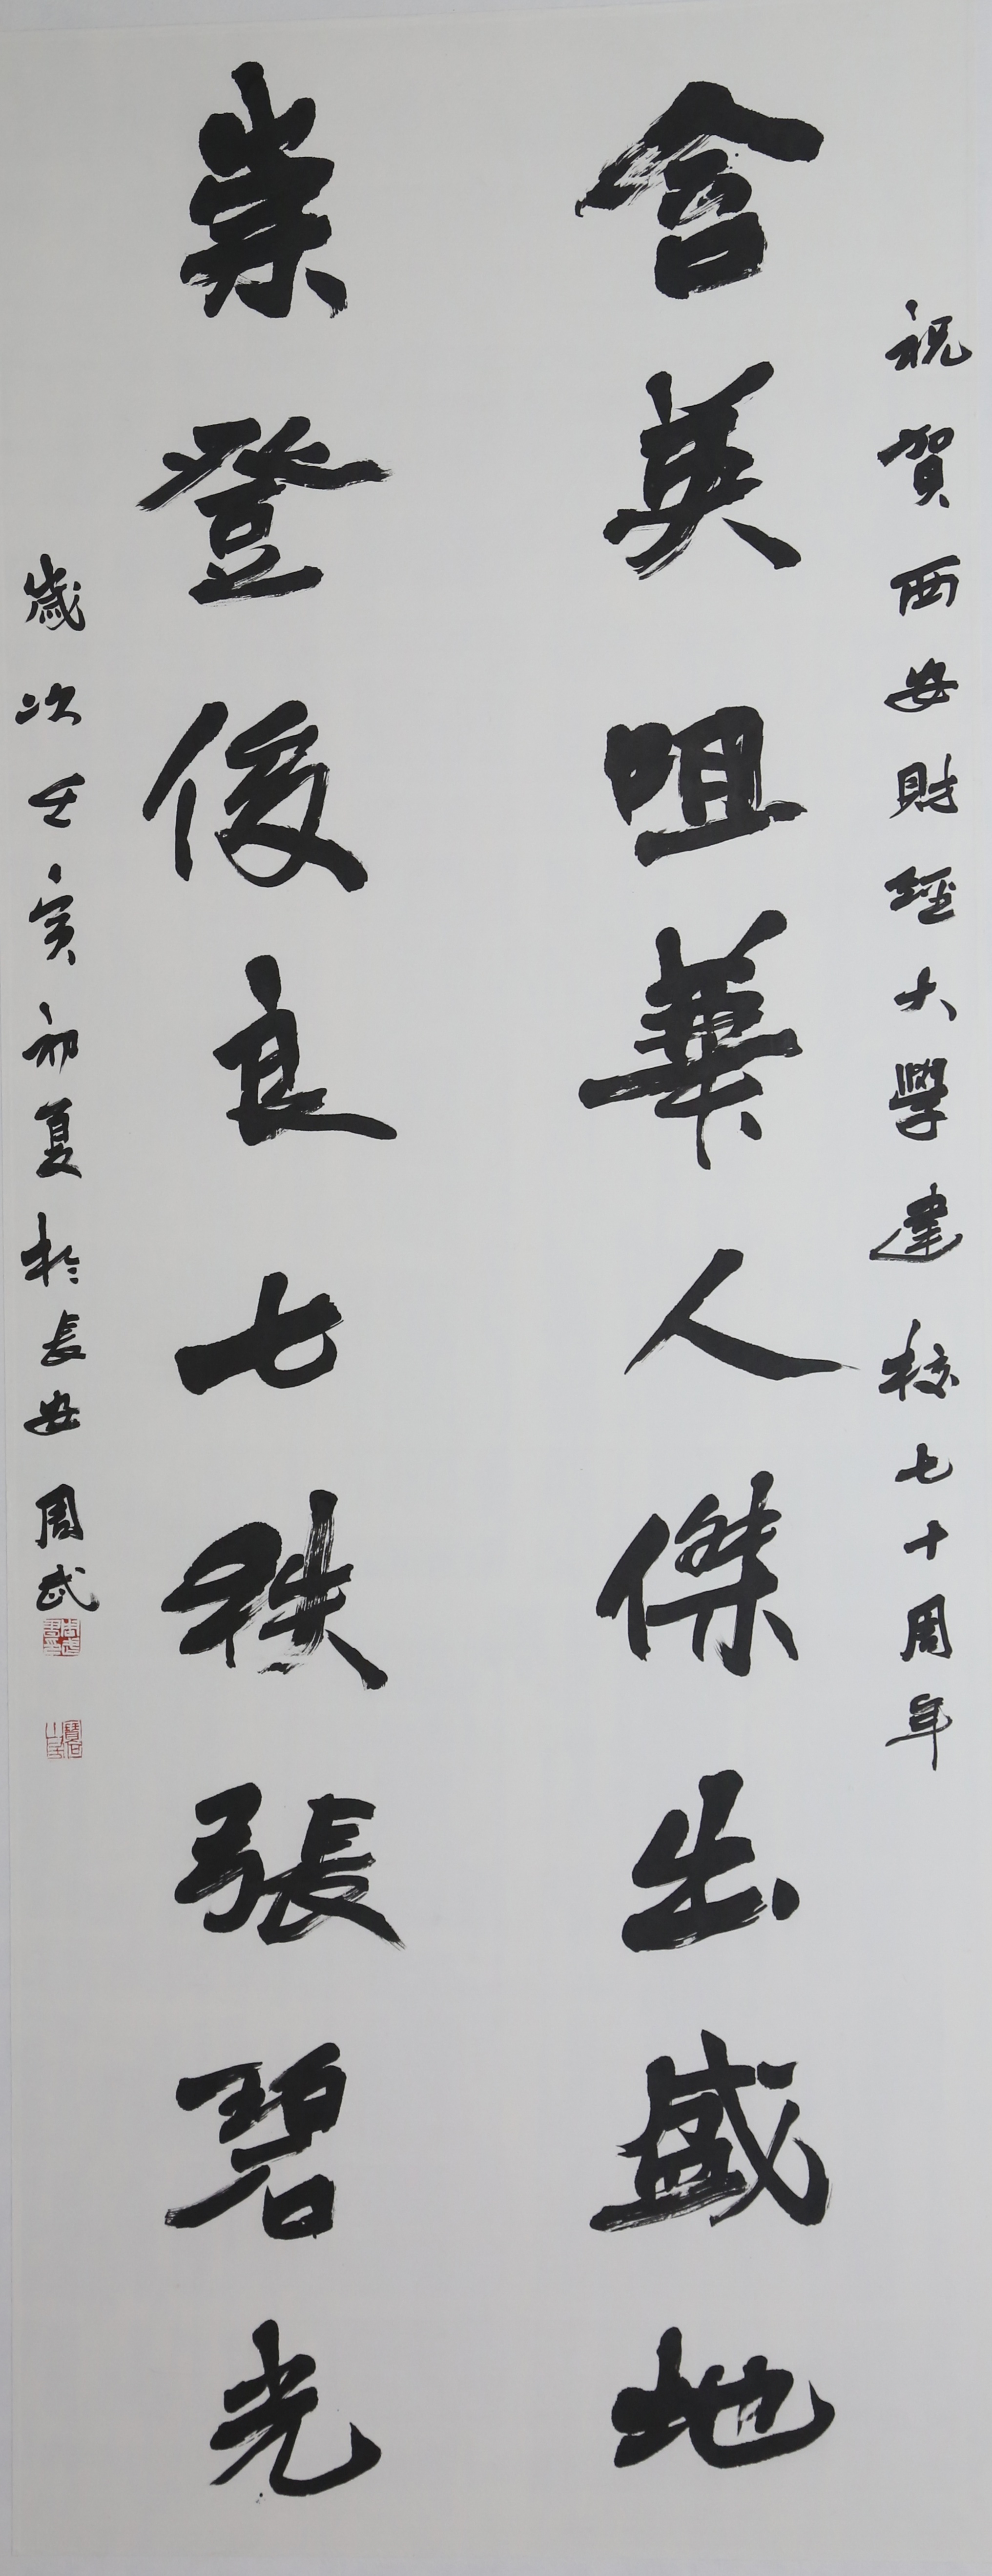 祝賀西安財經大學建校七十周年
含英咀華人傑出盛地
崇登俊良七秩張碧光
歲次壬寅初夏於長安周武